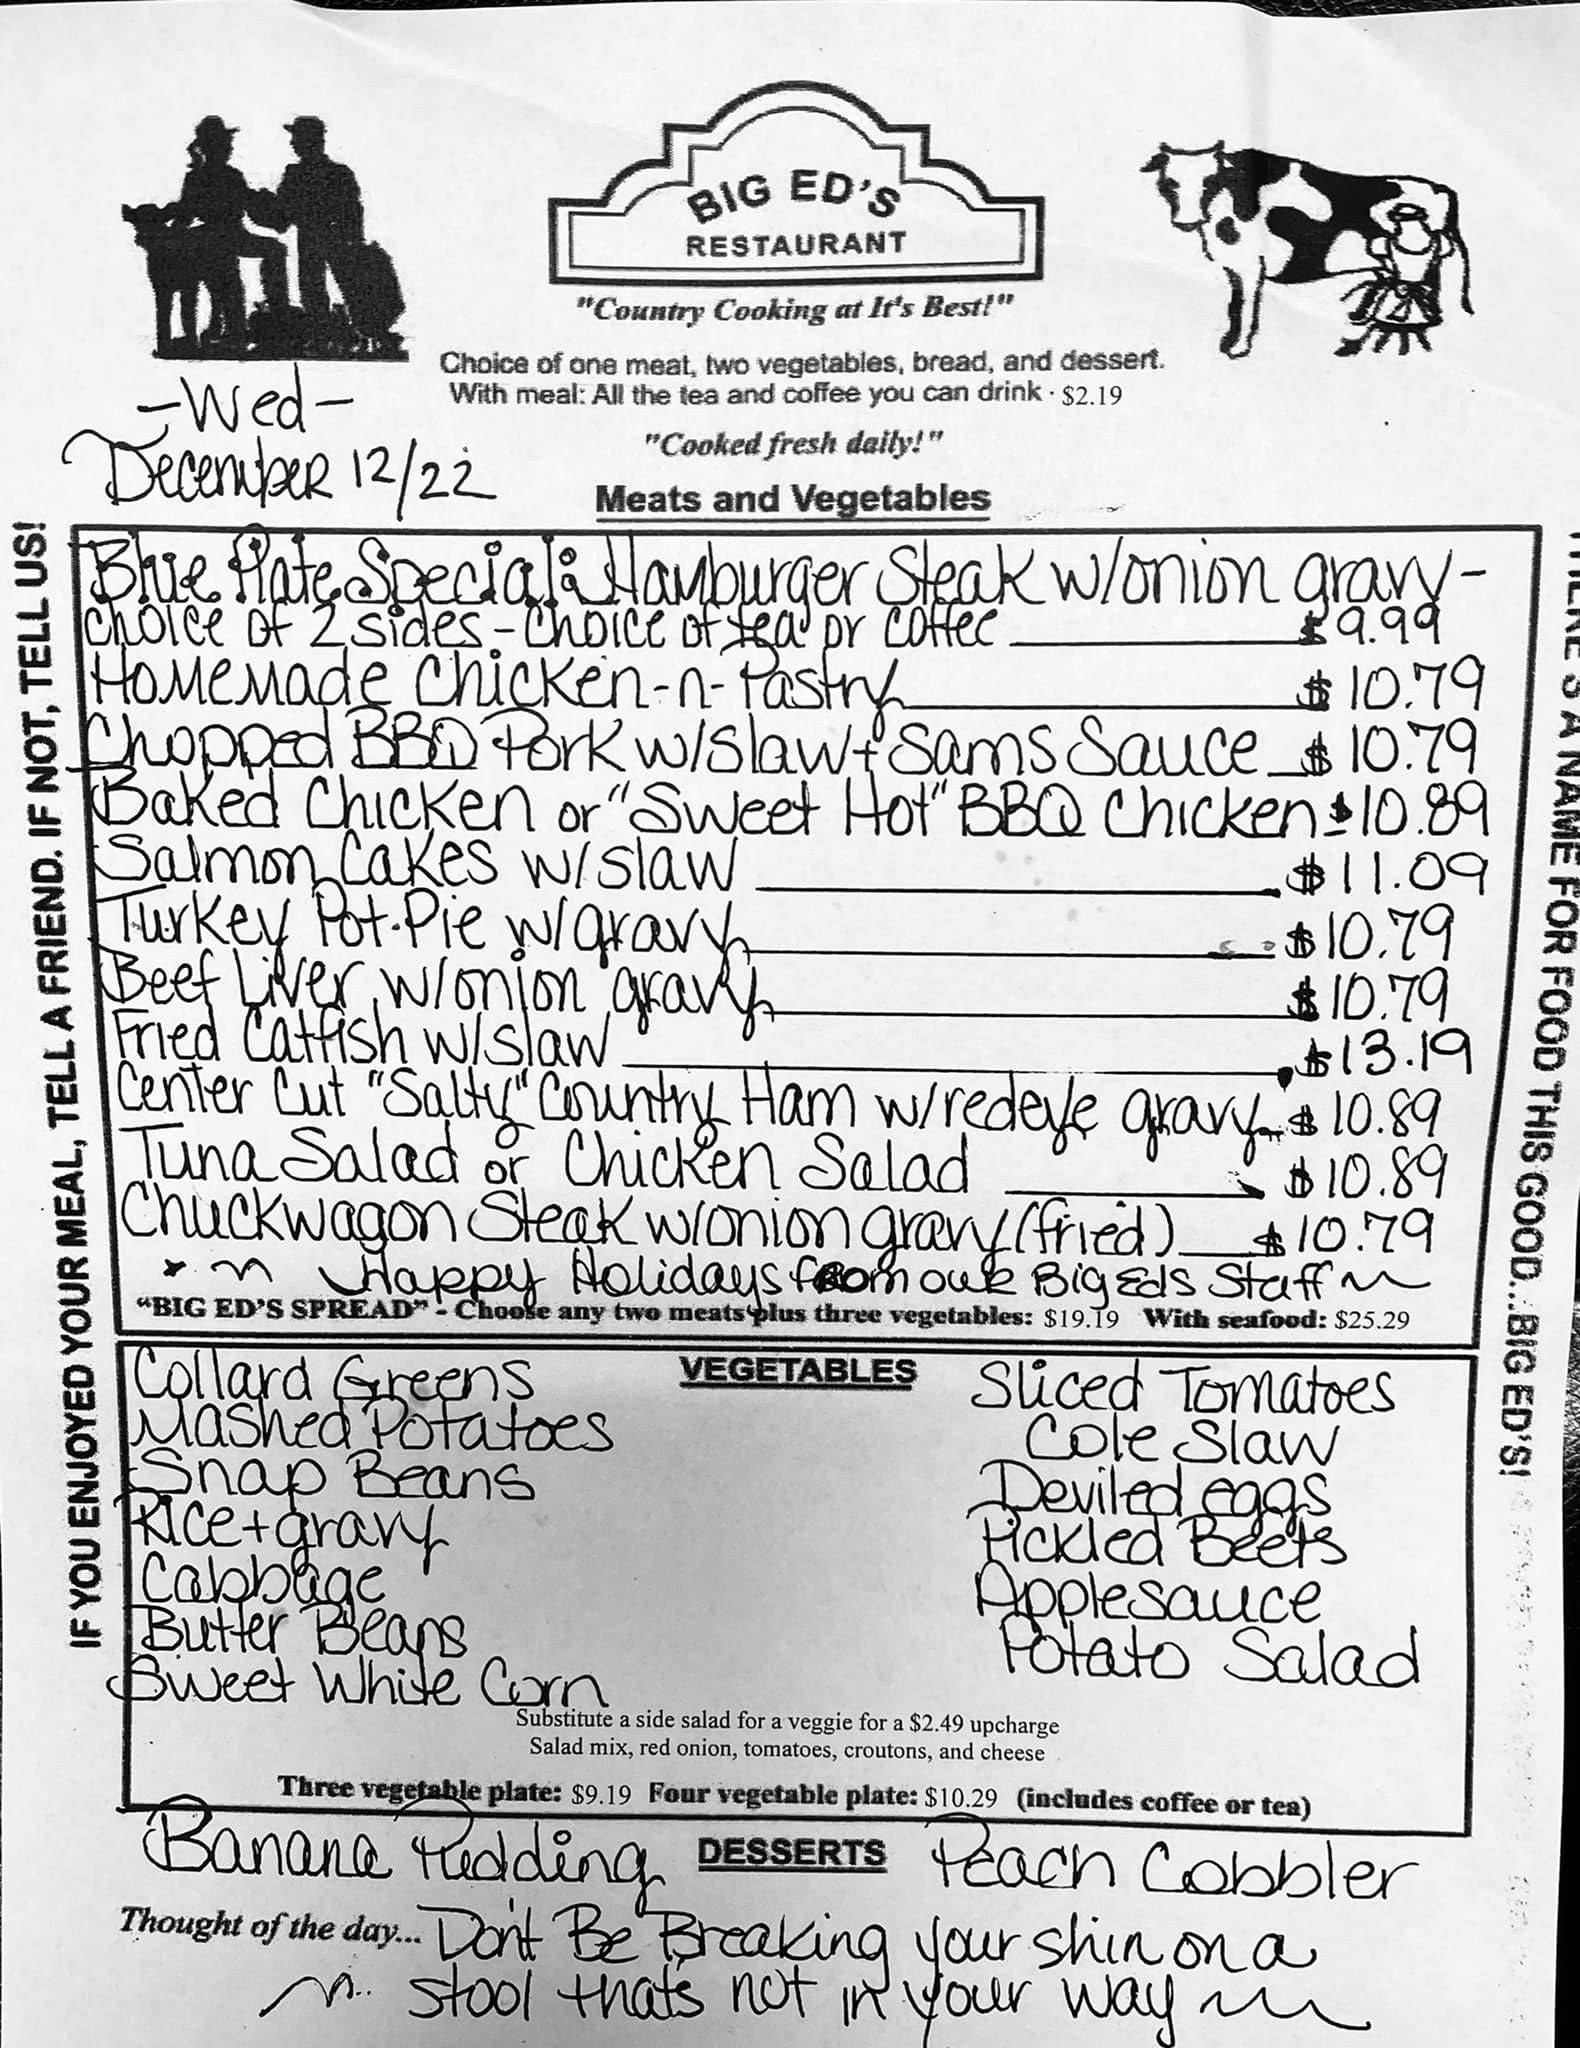 BIG ED'S
RESTAURANT
"Country Cooking at It's Best!"
Choice of one meat, two vegetables, bread, and dessert.
With meal: All the tea and coffee you can drink · $2.19
-Wed-
December 12/22
"Cooked fresh daily!"
Meats and Vegetables
IF YOU ENJOYED YOUR MEAL, TELL A FRIEND. IF NOT, TELL US!
Blue Plate Special: Hamburger Steak w/onion gravy-
choice of 2 sides - choice of tea or coffee $9.99
Homemade Chicken-n-Pastry $10.79
Chopped BBQ Pork w/slaw + Sams Sauce $10.79
Baked Chicken or "Sweet Hot" BBQ Chicken $10.89
Salmon Cakes w/slaw $11.09
Turkey Pot-Pie w/gravy $10.79
Beef Liver w/onion gravy $10.79
Fried Catfish w/slaw $13.19
Center Cut "Salty" Country Ham w/redeye gravy $10.89
Tuna Salad or Chicken Salad $10.89
Chuckwagon Steak w/onion gravy (fried) $10.79
Happy Holidays from our Big Eds Staff
"BIG ED'S SPREAD" - Choose any two meats plus three vegetables: $19.19 With seafood: $25.29
THERE'S A NAME FOR FOOD THIS GOOD...BIG ED'S!
VEGETABLES
Collard Greens
Mashed Potatoes
Snap Beans
Rice + gravy
Cabbage
Butter Beans
Sweet White Corn
Sliced Tomatoes
Cole Slaw
Deviled eggs
Pickled Beets
Applesauce
Potato Salad
Substitute a side salad for a veggie for a $2.49 upcharge
Salad mix, red onion, tomatoes, croutons, and cheese
Three vegetable plate: $9.19 Four vegetable plate: $10.29 (includes coffee or tea)
Banana Pudding DESSERTS Peach Cobbler
Thought of the day... Don't Be Breaking your shin on a
stool that's not in your way